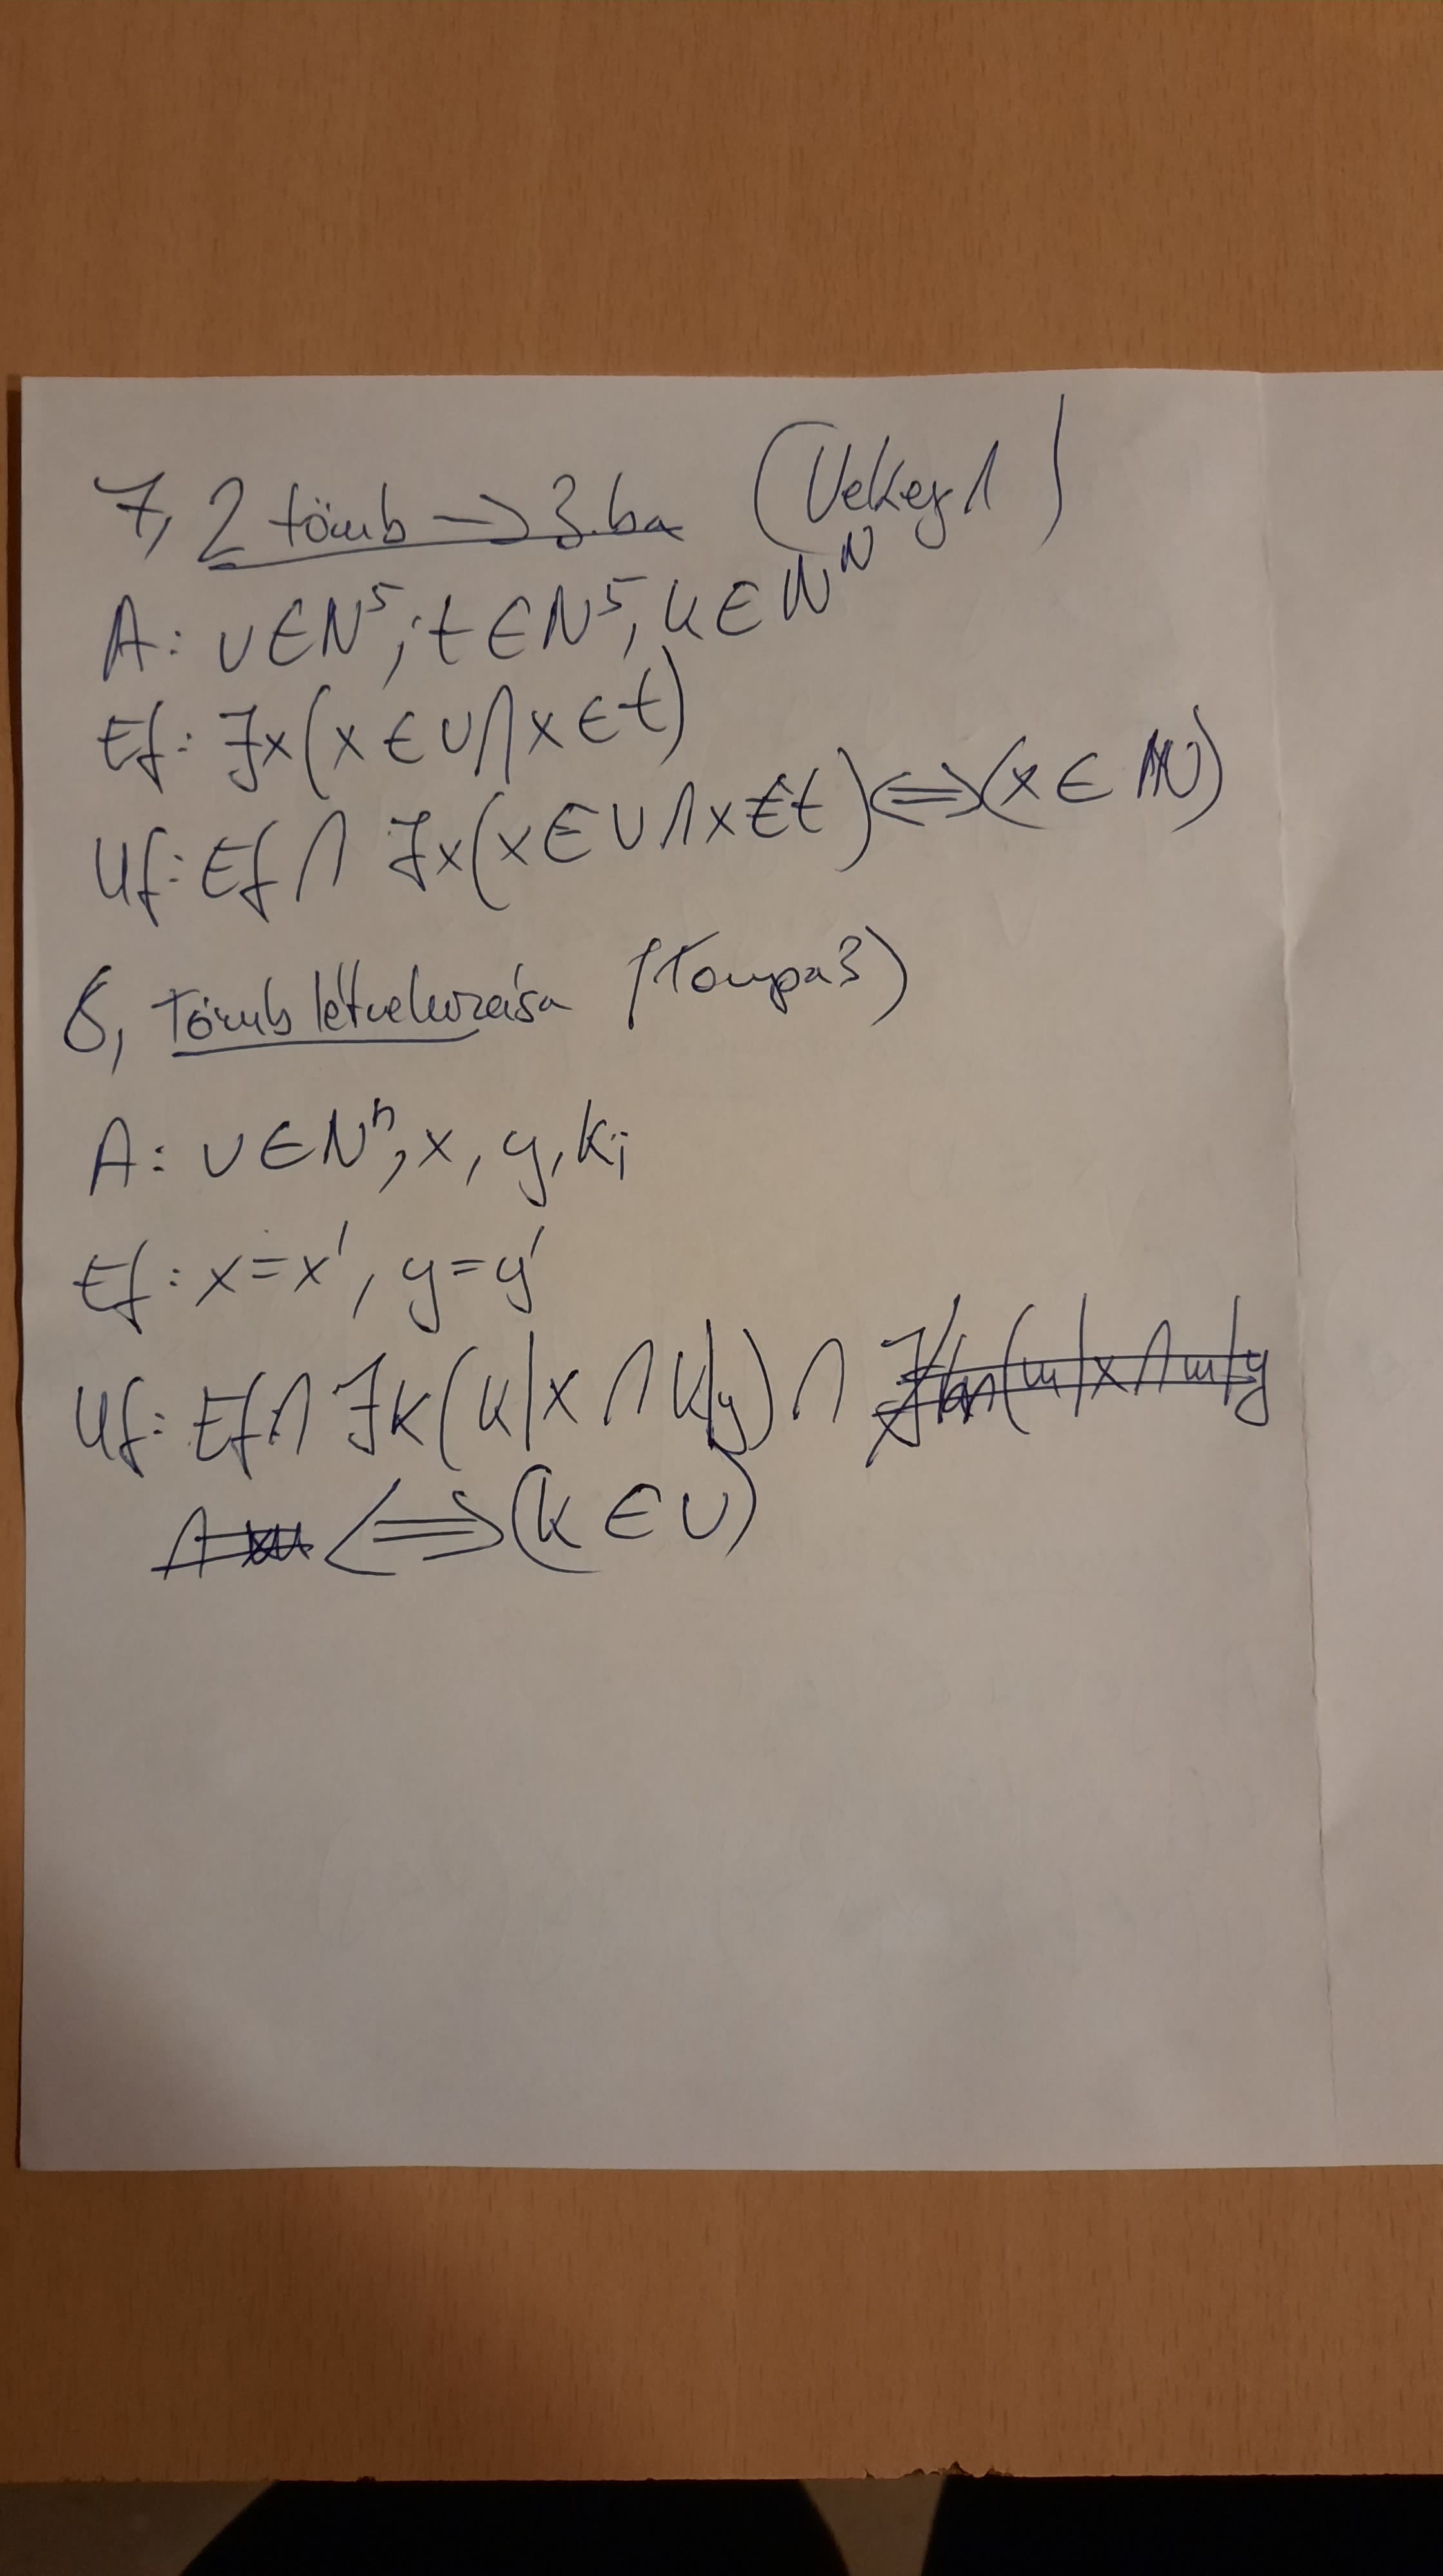 7, 2 tömb → 3.ba (Vekey1)
A: v∈N⁵; t∈N⁵, k∈N^N
Ef: ∃x(x∈v∧x∈t)
Uf: Ef∧ ∃x(x∈v∧x∈t)⇔(x∈
8, Tömb létrehozása
A: v∈Nⁿ, x, y, k;
Ef: x=x', y=y'
Uf: Ef∧ ∃k(k|x ∧ k|y) ∧
⇔(k∈v)